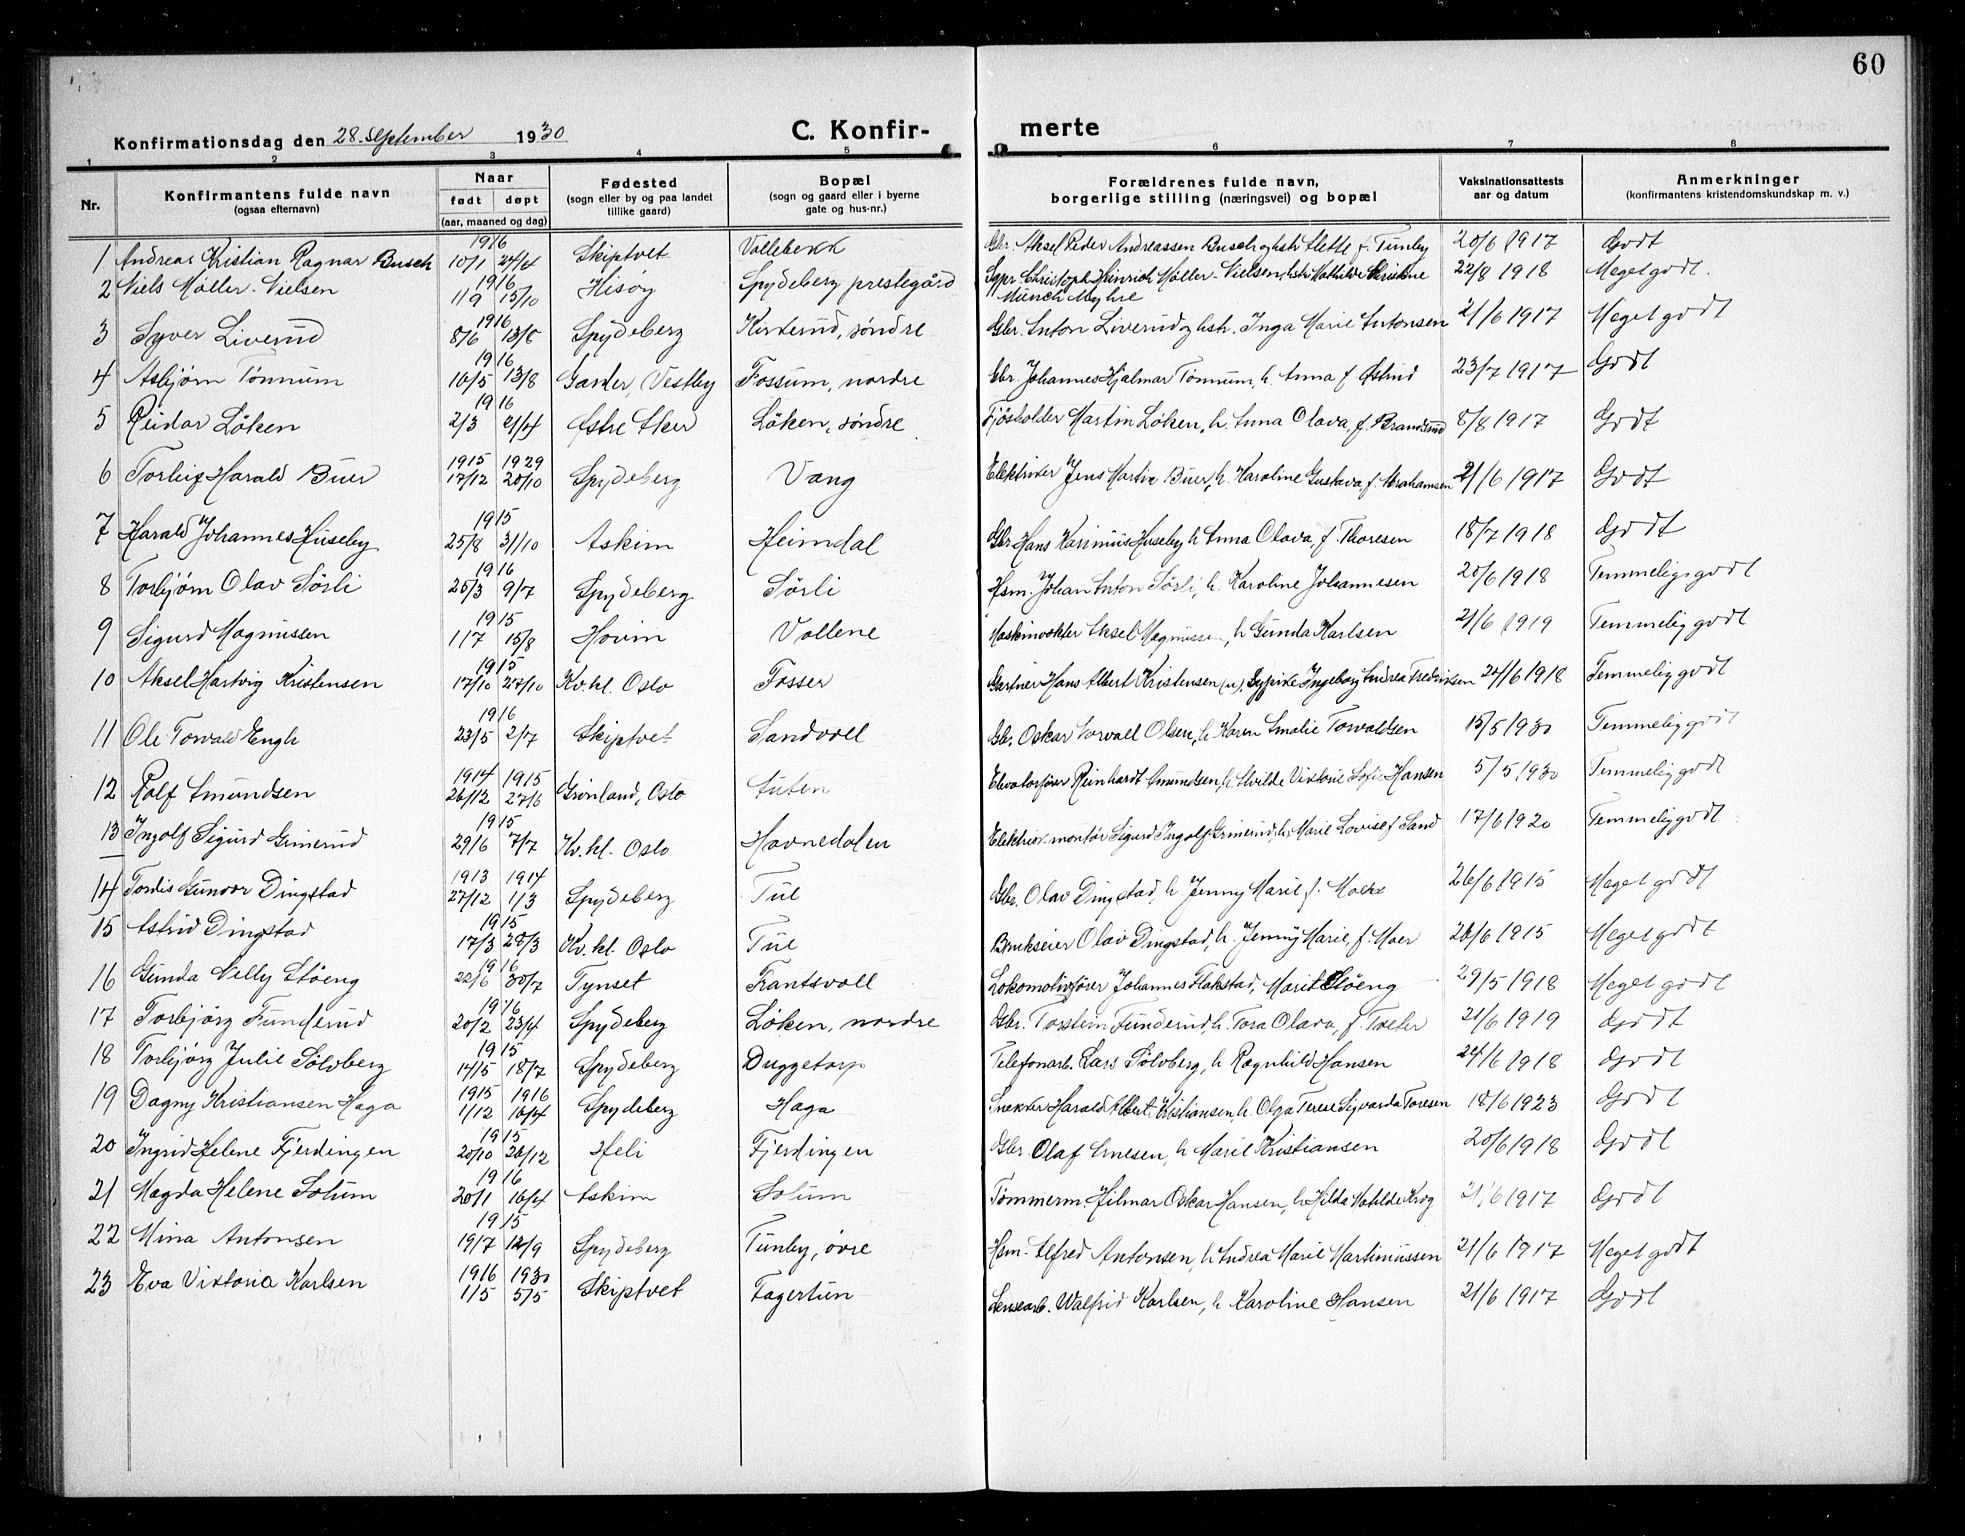 60
Konfirmationsdag den 28. September 1930 C. Konfirmerte
1 2 3 4 5 6 7 8
Nr. Konfirmantens fulde navn (ogsaa efternavn) Naar født døpt (aar, maaned og dag) Fødested (sogn eller by og paa landet tillike gaard) Bopæl (sogn og gaard eller i byerne gate og hus-nr.) Forældrenes fulde navn, borgerlige stilling (næringsvei) og bopæl Vaksinationsattests aar og datum Anmerkninger (konfirmantens kristendomskundskap m. v.)
1 Andreas Kristian Ragnar Busch 1916 10/1 24/4 Skiptvet Vollebekk Gbr. Aksel Peder Andreassen Busch og hstr. Mette f. Tunby 20/6 1917 Godt
2 Niels Møller-Nielsen 1916 11/9 15/10 Hisøy Spydeberg prestegård Sgpr. Christoph Heinrich Møller-Nielsen, hstr. Mathilde Kristine Munch Myhre 22/8 1918 Meget godt.
3 Syver Liverud 1916 8/6 13/8 Spydeberg Kirkerud, søndre Gbr. Anton Liverud og hstr. Inga Marie Antonsen 21/6 1917 Meget godt
4 Asbjørn Tønnum 1916 10/5 13/8 Garder, Vestby Fossum, nordre Gbr. Johannes Hjalmar Tønnum, h. Anna f. Østlid 23/7 1917 Godt
5 Reidar Løken 1916 2/3 21/4 Østre Aker Løken, søndre Fjøsholder Martin Løken, h. Anna Olava, f. Brandsrud 8/8 1917 Godt
6 Torleif Harald Buer 1915 17/12 1929 20/10 Spydeberg Vang Elektriker Jens Martin Buer, h. Karoline Gustava f. Abrahamsen 21/6 1917 Godt
7 Harald Johannes Huseby 1915 25/8 31/10 Askim Heimdal Gbr. Hans Karinius Huseby h. Anna Olava, f. Thoresen 18/7 1918 Godt
8 Torbjørn Olav Sørli 1916 25/3 9/7 Spydeberg Sørli Hsm. Johan Anton Sørli, h. Karoline Johannesen 20/6 1918 Temmelig godt
9 Sigurd Magnussen 1915 11/7 15/8 Hovin Vollene Maskinvokter Aksel Magnussen, h Gunda Karlsen 21/6 1919 Temmelig godt
10 Aksel Hartvig Kristensen 1915 17/10 27/10 Kv.kl. Oslo Fosser Gartner Hans Albert Kristensen (u), Sypike Ingeborg Andrea Fredriksen 24/6 1918 Temmelig godt
11 Ole Torvald Engh 1916 23/5 2/7 Skiptvet Sandvoll Gbr. Oskar Torvall Olsen, h Karen Amalie Torvaldsen 15/5 1930 Temmelig godt
12 Rolf Amundsen 1914 26/12 1915 27/6 Grønland, Oslo Tuten Elevatorfører Reinhardt Amundsen, h. Alvilde Viktoria Sofie Hansen 5/5 1930 Temmelig godt
13 Ingolf Sigurd Grimerud 1915 29/6 7/7 Kv.kl. Oslo Havnedalen Elektrisk montør Sigurd Ingolf Grimerud, h. Marie Lovise f. Sand 17/6 1920 Temmelig godt
14 Tordis Gunvor Dingstad 1913 27/12 1914 1/3 Spydeberg Tul Gbr. Olav Dingstad, h Jenny Marie f. Moer 26/6 1915 Meget godt
15 Astrid Dingstad 1915 17/3 28/3 Kv.kl. Oslo Tul Brukseier Olav Dingstad, h. Jenny Marie, f. Moer 26/6 1915 Meget godt
16 Gunda Nelly Støeng 1916 22/6 30/7 Tynset Frantsvoll Lokomotivfører Johannes Flakstad, Marit Støeng 29/5 1918 Meget godt
17 Torbjørg Funderud 1916 20/2 23/4 Spydeberg Løken, nordre Gbr. Torstein Funderud h. Tora Olava, f. Toeler 21/6 1919 Godt
18 Torbjørg Julie Sølvberg 1915 14/5 18/7 Spydeberg Duggetorp Telefonarb. Lars Sølvberg, h Ragnhild Hansen 24/6 1918 Godt
19 Dagny Kristiansen Haga 1915 1/12 1916 16/4 Spydeberg Haga Snekker Harald Albert Kristiansen, h. Olga Terese Sigvarda Toresen 18/6 1923 Godt
20 Ingrid Helene Fjerdingen 1915 20/10 26/12 Heli Fjerdingen Gbr Olaf Arnesen, h Marie Kristiansen 20/6 1918 Godt
21 Magda Helene Solum 1916 20/1 16/4 Askim Solum Tømmerm. Hilmar Oskar Hansen, h Hilda Matilde Krog 21/6 1917 Godt
22 Mina Antonsen 1915 19/7 12/9 Spydeberg Tunby, øvre Hsm. Alfred Antonsen, h Andrea Marie Martinussen 21/6 1917 Meget godt
23 Eva Viktoria Karlsen 1916 1/5 1930 5/5 Skiptvet Fagertun Lensearb. Walfrid Karlsen, h Karoline Hansen 21/6 1917 Godt